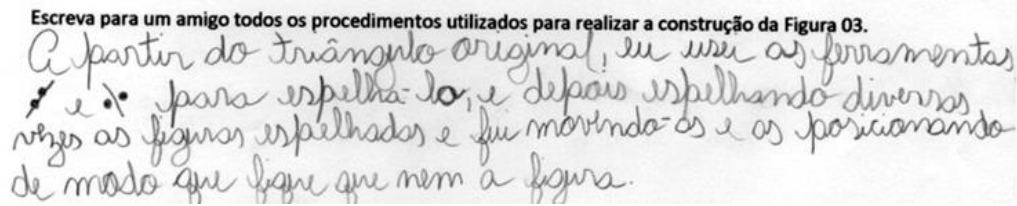 Escreva para um amigo todos os procedimentos utilizados para realizar a construção da Figura 03.
A partir do triângulo original, eu usei as ferramentas
e para espelha-lo, e depois espelhando diversas
vezes as figuras espelhadas e fui movendo-as e as posicionando
de modo que fique que nem a figura.